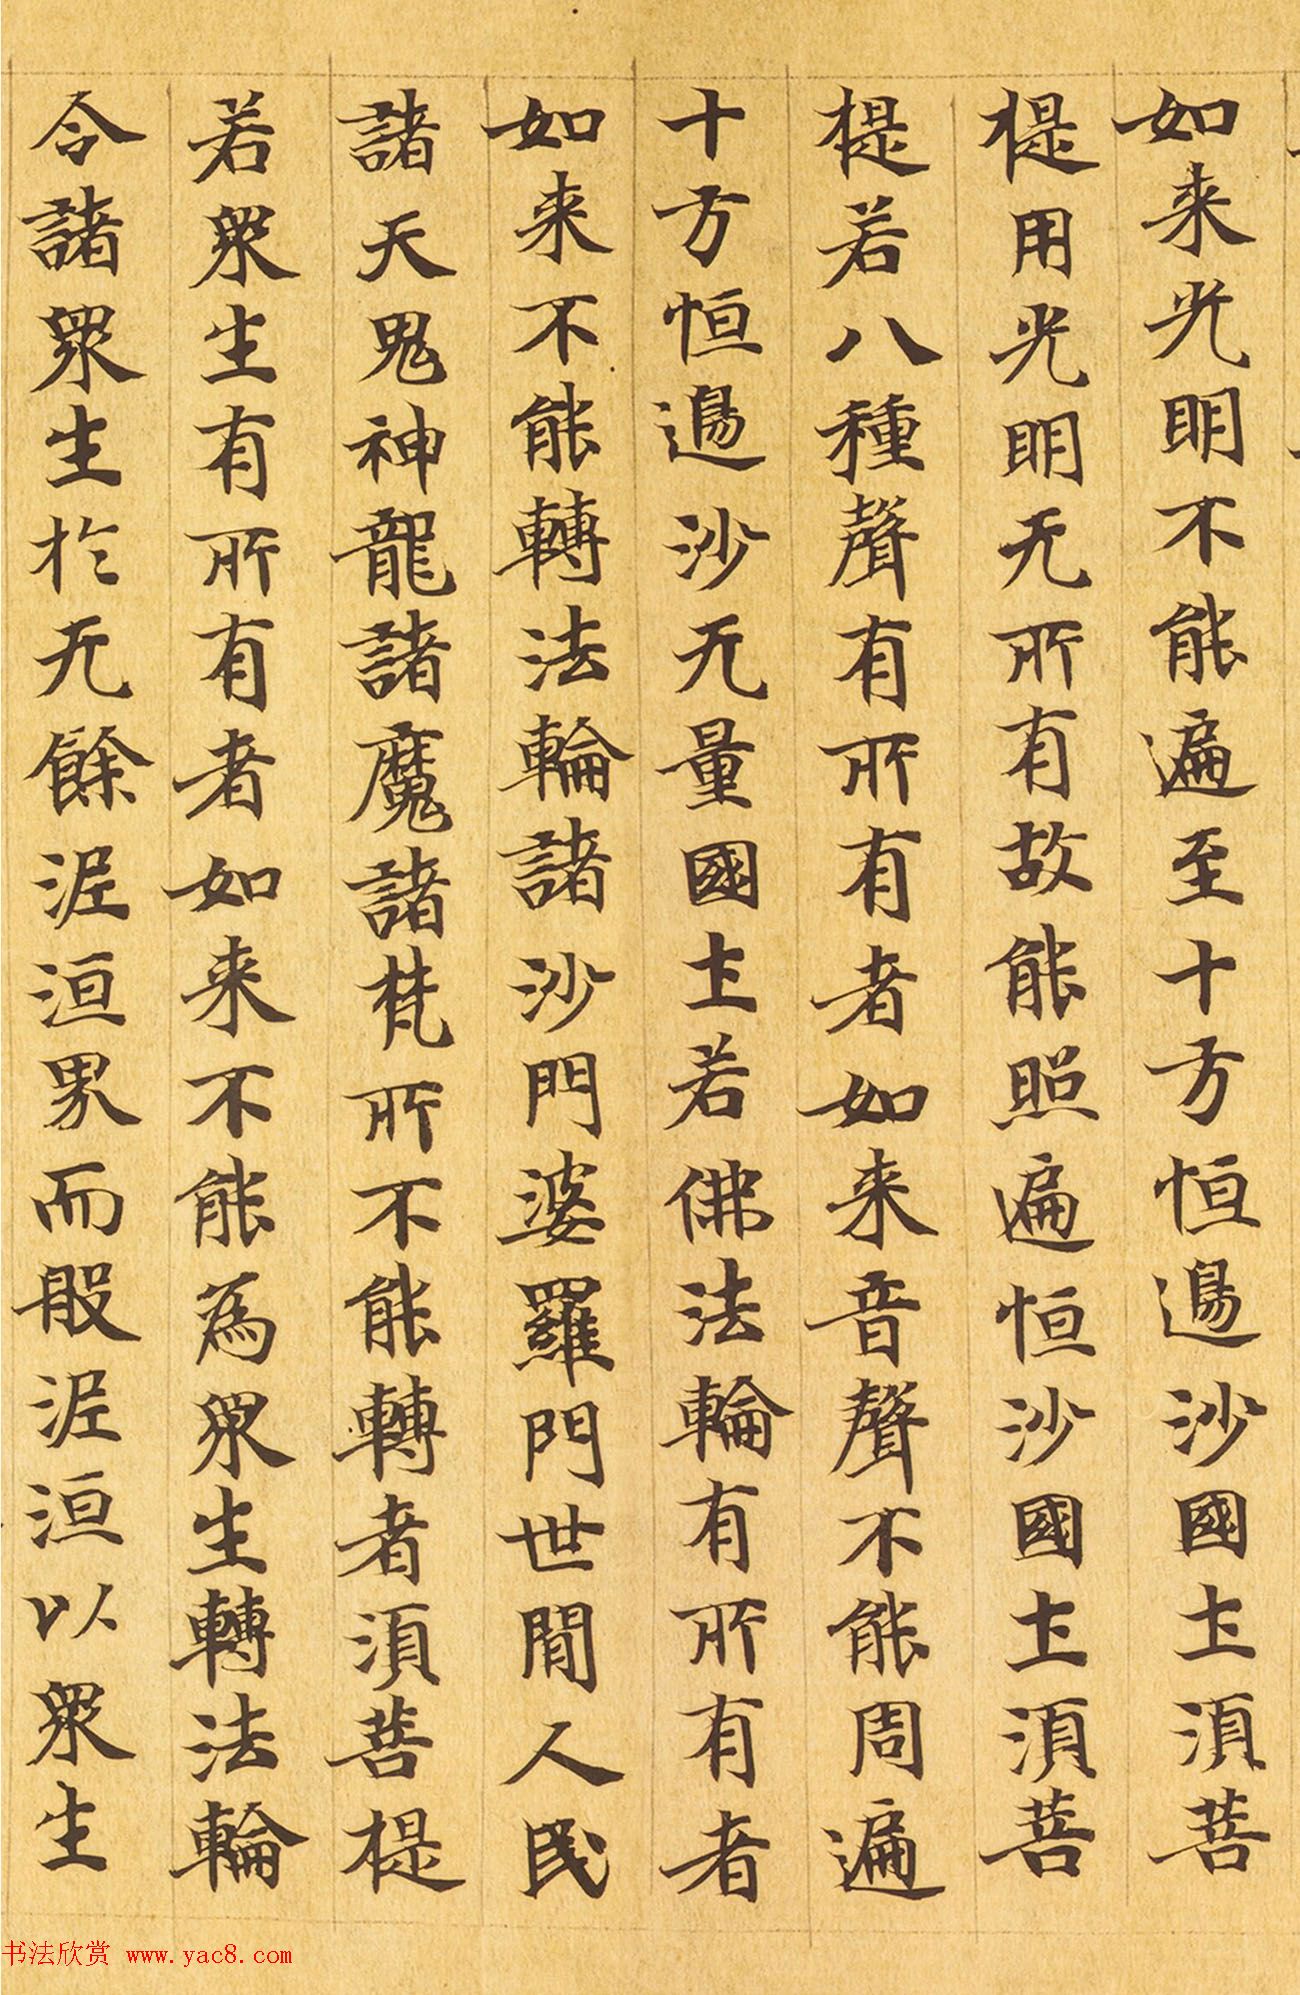 如来光明不能遍至十方恒邊沙國土湏菩
提用光明无所有故能照遍恒沙國土湏菩
提若八種聲有所有者如来音聲不能周遍
十方恒邊沙无量國土若佛法輪有所有者
如来不能轉法輪諸沙門婆羅門世間人民
諸天鬼神龍諸魔諸梵所不能轉者湏菩提
若眾生有所有者如来不能為眾生轉法輪
令諸眾生於无餘泥洹界而般泥洹以眾生
书法欣赏 www.yac8.com